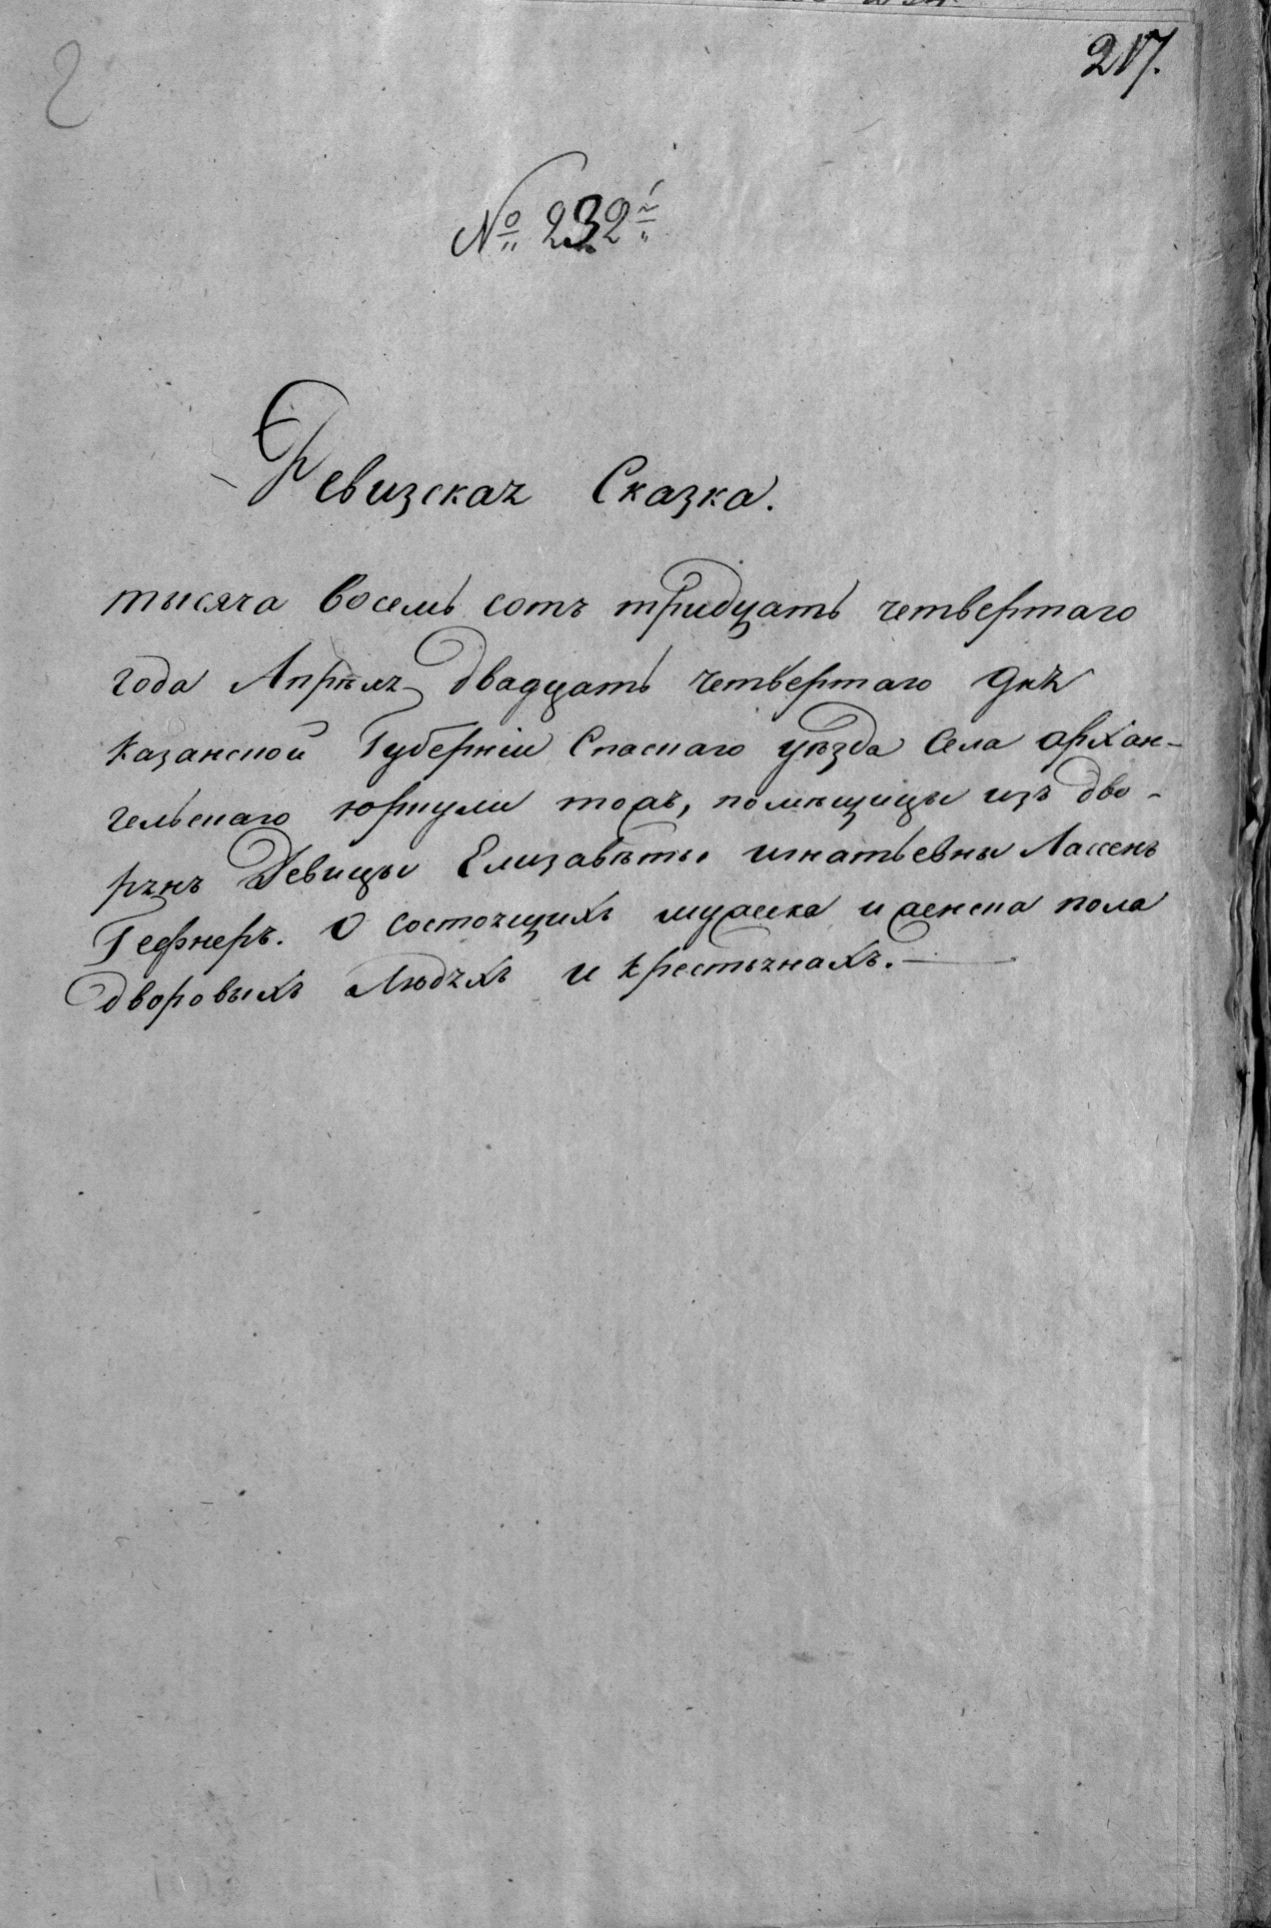 217.
№ 232й
Ревизская Сказка.
тысяча восемь сотъ тридцать четвертаго
года Апрѣля двадцать четвертаго дня
казанской Губерніи Спаскаго уѣзда Села архан-
гельскаго юркули тожъ, помѣщицы изъ дво-
рянъ Девицы Елизаветы игнатьевны Лассенъ
Гефнеръ. О состоящихъ мужеска и женска пола
дворовыхъ Людяхъ и крестьянахъ.